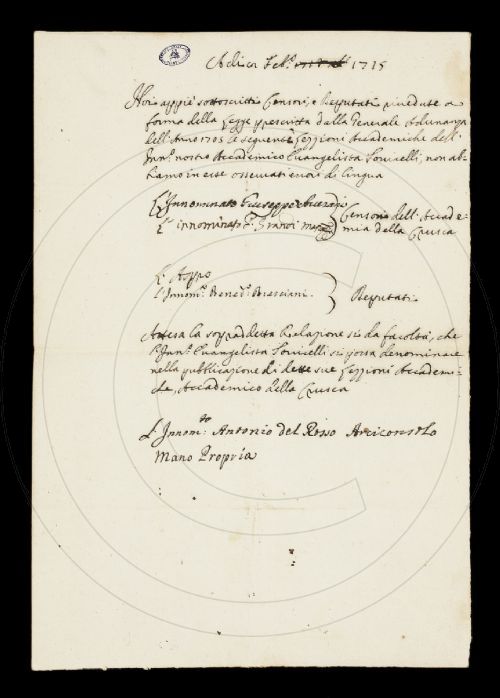 Adi 21 Feb.º 1715
Noi appiè sottoscritti Censori, e Deputati rivedute a
forma della Legge prescritta dalla Generale Adunanza
dell'Anno 1705 le seguenti Lezzioni Accademiche dell'
Inn.º nostro Accademico Evangelista Torricelli, non ab-
biamo in esse osservati errori di lingua
L'Innominato Giuseppe Averani
L'innominato Grandi
Censori dell'Accade-
mia della Crusca
L'Aspro
L'Innom.º Bened.º Bresciani.
Deputati
Attesa la sopraddetta Relazione si dà facoltà, che
l'Inn.º Evangelista Torricelli si possa denominare
nella pubblicazione di dette sue Lezzioni Accademi-
che, Accademico della Crusca
L'Innom:to Antonio del Rosso Arciconsolo
Mano Propria